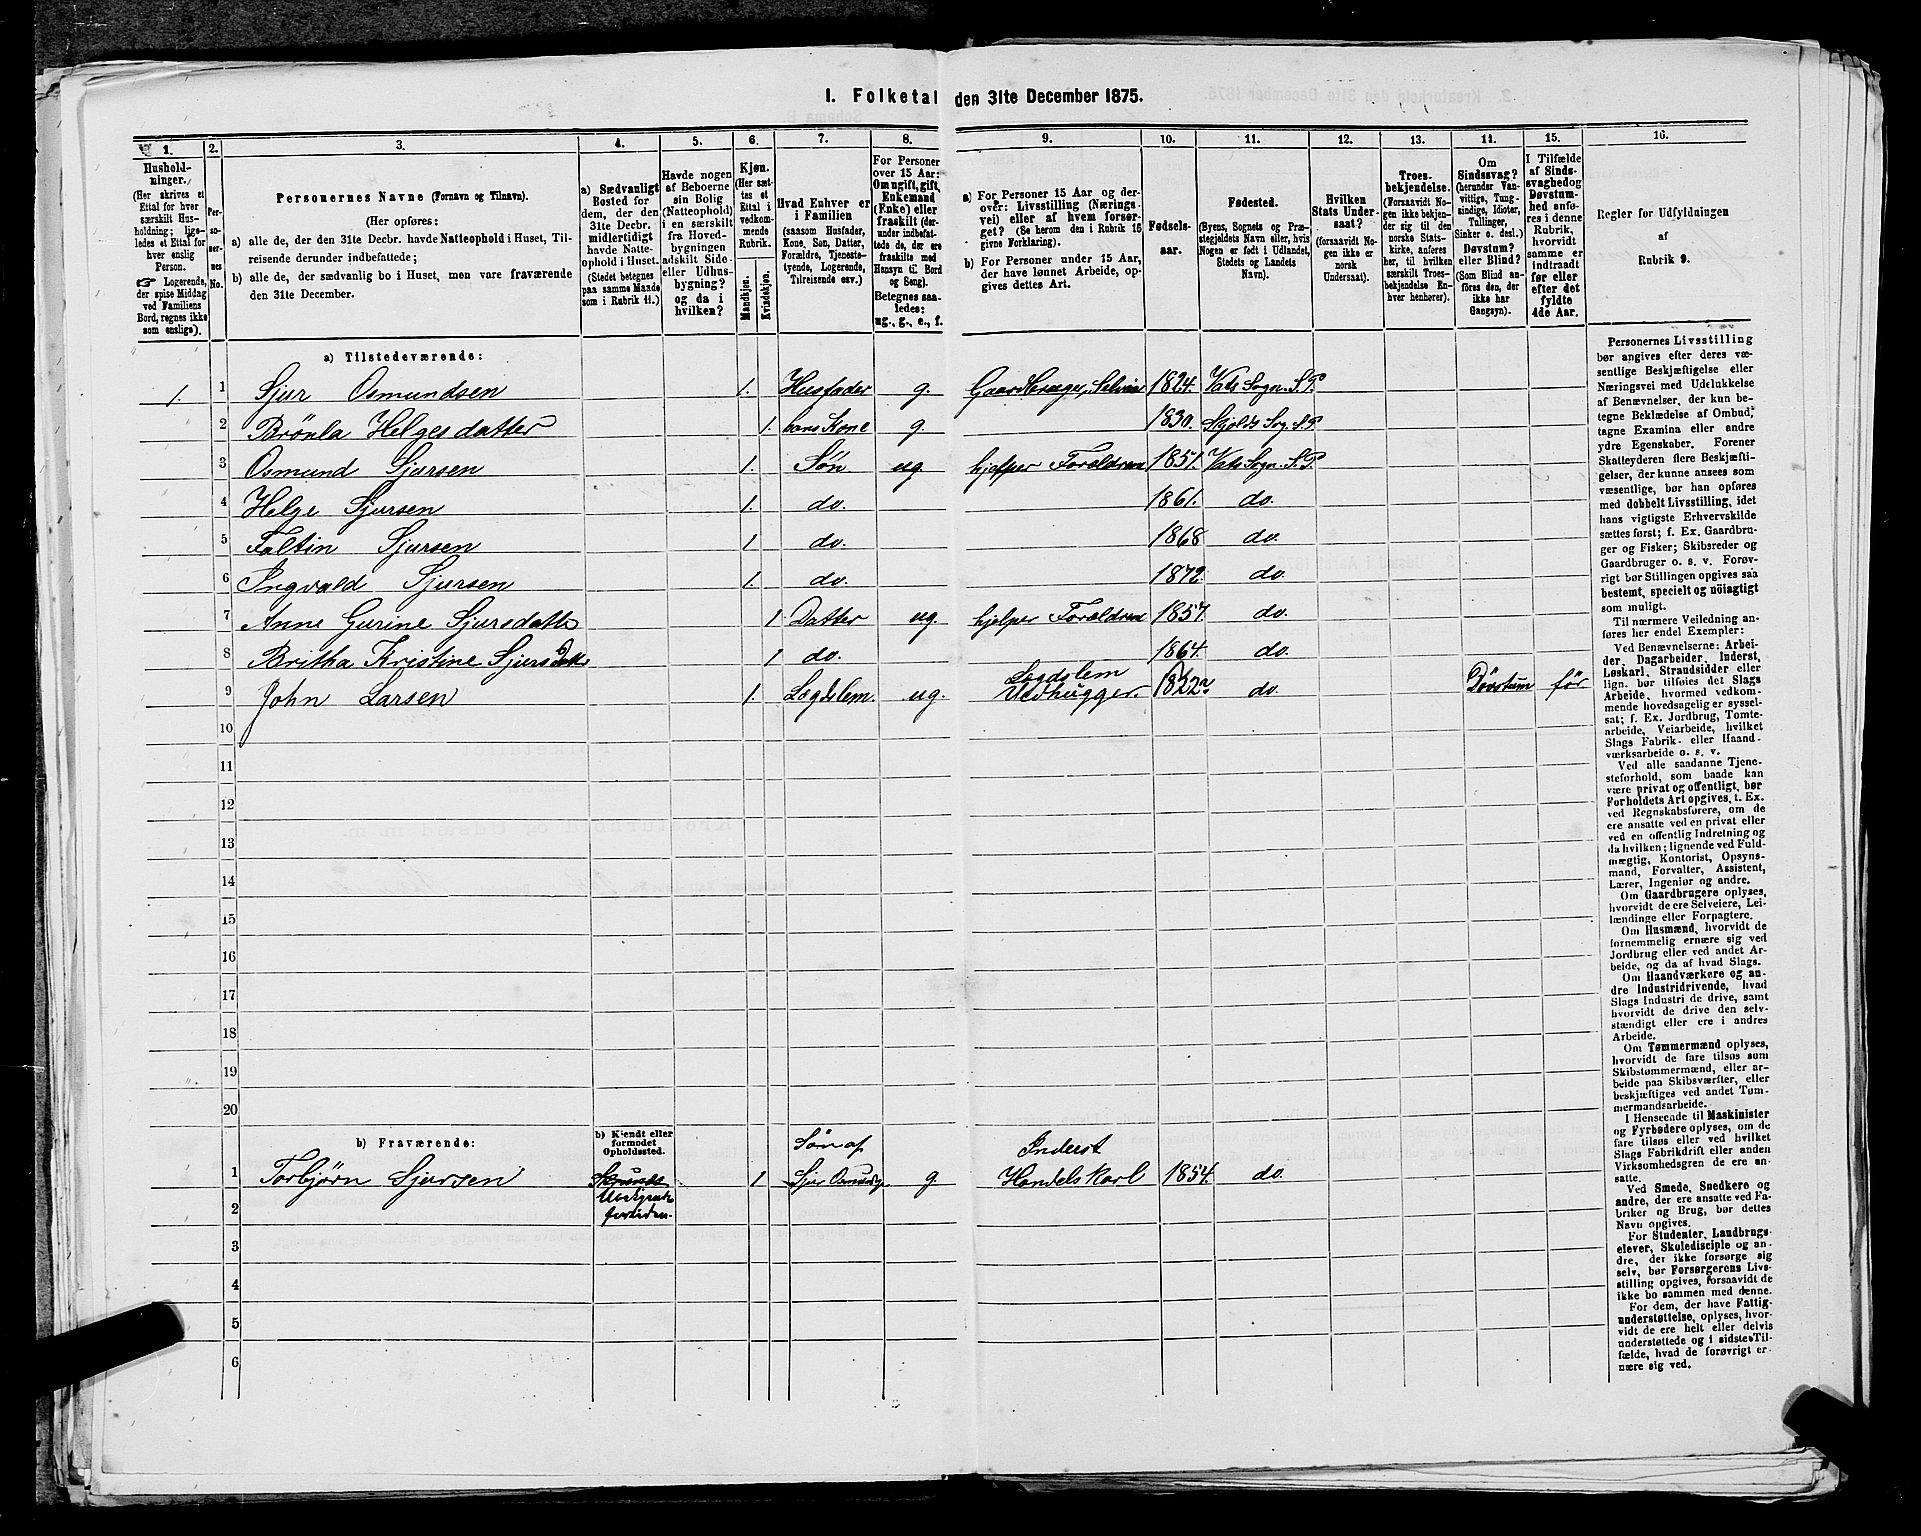 1. Folketal den 31te December 1875.
1. 2. 3. 4. 5. 6. 7. 8. 9. 10. 11. 12. 13. 14. 15. 16.
Hushold-
ninger.
(Her skrives et
Ettal for hver
særskilt Hus-
holdning; lige-
ledes et Ettal for
hver enslig
Person.
☞ Logerende,
der spise Middag
ved Familiens
Bord, regnes ikke
som enslige).
Per-
so-
ner-
nes
No.
Personernes Navne (Fornavn og Tilnavn).
(Her opføres:
a) alle de, der den 31te Decbr. havde Natteophold i Huset, Til-
reisende derunder indbefattede;
b) alle de, der sædvanlig bo i Huset, men vare fraværende
den 31te December.
a) Sædvanligt
Bosted for
dem, der den
31te Decbr.
midlertidigt
havde Natte-
ophold i Huset.
(Stedet betegnes
paa samme Maade
som i Rubrik 11.)
Havde nogen
af Beboerne
sin Bolig
(Natteophold)
i en særskilt
fra Hoved-
bygningen
adskilt Side-
eller Udhus-
bygning?
og da i
hvilken?
Kjøn.
(Her sæt-
tes et
Ettal i
vedkom-
mende
Rubrik.
Mandkjøn.
Kvindekjøn.
Hvad Enhver er
i Familien
(saasom Husfader,
Kone, Søn, Datter,
Forældre, Tjeneste-
tyende, Logerende,
Tilreisende osv.)
For Personer
over 15 Aar:
Om ugift, gift,
Enkemand
(Enke) eller
fraskilt (der-
under indbefat-
tede de, der ere
fraskilte med
Hensyn til Bord
og Seng).
Betegnes saa-
ledes:
ug., g., e., f.
a) For Personer 15 Aar og der-
over: Livsstilling (Nærings-
vei) eller af hvem forsør-
get? (Se herom den i Rubrik 16
givne Forklaring).
b) For Personer under 15 Aar,
der have lønnet Arbeide, op-
gives dettes Art.
Fødsels-
aar.
Fødested.
(Byens, Sognets og Præ-
stegjeldets Navn eller, hvis
Nogen er født i Udlandet,
Stedets og Landets
Navn).
Hvilken
Stats Under-
saat?
(forsaavidt No-
gen ikke er
norsk
Undersaat).
Troes-
bekjendelse.
(Forsaavidt No-
gen ikke bekjen-
der sig til den
norske Stats-
kirke, anføres
her, til hvilken
særskilt Troes-
bekjendelse En-
hver henhører).
Om
Sindssvag?
(herunder Van-
vittige, Tung-
sindige, Idioter,
Tullinger,
Sinker o. desl.)
Døvstum?
eller Blind?
(Som Blind an-
føres den, der
ikke har
Gangsyn).
I Tilfælde
af Sinds-
svaghed og
Døvstum-
hed anfø-
res i denne
Rubrik,
hvorvidt
samme er
indtraadt
før eller
efter det
fyldte
4de Aar.
Regler for Udfyldningen
af
Rubrik 9.
a) Tilstedeværende:
1. 1 Sjur Osmundsen 1. Husfader g. Gaardbruger, Selveier 1824. Vats Sogn. S.P.
2 Brönla Helgesdatter 1. hans Kone g. 1830. Skjolds Sog. S.P
3 Osmund Sjursen 1. Søn ug hjælper Forældren 1851. Vats Sogn. S.P.
4 Helge Sjursen 1. do. 1861. do.
5 Faltin Sjursen 1 do. 1868 do.
6 Ingvald Sjursen 1. do. 1872. do.
7 Anne Gurine Sjursdatter 1 Datter ug. hjelper Forældren 1857. do.
8 Britha Kristine Sjursdatter 1 do. 1864. do.
9 John Larsen 1. Lægdslem. ug. Lægdslem
Vedhugger. 1822 do. Døvstum før
10
11
12
13
14
15
16
17
18
19
20
b) Fraværende:
b) Kjendt eller
formodet
Opholdssted.
1 Torbjørn Sjursen 1 Søn af
Sjur Osmunds. g. Inderst
Handelskarl 1854. do.
2
3
4
5
6
Personernes Livsstilling
bør angives efter deres væ-
sentlige Beskjæftigelse eller
Næringsvei med Udelukkelse
af Benævnelser, der kun be-
tegne Beklædelse af Ombud,
tagne Examina eller andre
ydre Egenskaber. Forener
Skatteyderen flere Beskjæfti-
gelser, der kunne ansees som
væsentlige, bør han opføres
med dobbelt Livsstilling, idet
hans vigtigste Erhvervskilde
sættes først; f. Ex. Gaardbru-
ger og Fisker; Skibsreder og
Gaardbruger o. s. v. Forøv-
rigt bør Stillingen opgives saa
bestemt, specielt og nöiagtigt
som muligt.
Til nærmere Veiledning an-
føres her endel Exempler:
Ved Benævnelserne: Arbei-
der, Dagarbeider, Inderst,
Løskarl, Strandsidder eller
lign. bør tilføies det Slags
Arbeide, hvormed vedkom-
mende hovedsagelig er syssel-
sat; f. Ex. Jordbrug, Tomte-
arbeide, Veiarbeide, hvilket
Slags Fabrik- eller Haand-
værksarbeide o. s. v.
Ved alle saadanne Tjene-
steforhold, som baade kan
være privat og offentligt, bør
Forholdets Art opgives, t. Ex.
ved Regnskabsførere, om de
ere ansatte ved en privat eller
ved en offentlig Indretning og
da hvilken; lignende ved Fuld-
mægtig, Kontorist, Opsyns-
mand, Forvalter, Assistent,
Lærer, Ingeniør og andre.
Om Gaardbrugere oplyses,
hvorvidt de ere Selveiere, Lei-
lændinge eller Forpagtere.
Om Husmænd, hvorvidt de
fornemmelig ernære sig ved
Jordbrug eller ved andet Ar-
beide, og da af hvad Slags.
Om Haandværkere og an-
dre Industridrivende, hvad
Slags Industri de drive, samt
hvorvidt de drive den selv-
stændigt eller ere i andres
Arbeide.
Om Tømmermænd oplyses,
hvorvidt de fare tilsøs som
Skibstømmermænd, eller ar-
beide paa Skibsværfter, eller
beskjæftiges ved andet Tøm-
mermandsarbeide.
I Henseende til Maskinister
og Fyrbødere oplyses, om de
fare tilsøs eller ved hvilket
Slags Fabrikdrift eller anden
Virksomhedsgren de ere an-
satte.
Ved Smede, Snedkere og
andre, der ere ansatte ved Fa-
briker og Brug, bør dettes
Navn opgives.
For Studenter, Landbrugs-
elever, Skoledisciple og an-
dre, der ikke forsørge sig
selv, bør Forsørgerens Livs-
stilling opgives, forsaavidt de
ikke bo sammen med denne.
For dem, der have Fattig-
understøttelse, oplyses, hvor-
vidt de ere helt eller delvis
understøttede og i sidste Til-
fælde, hvad de forøvrigt er-
nære sig ved.